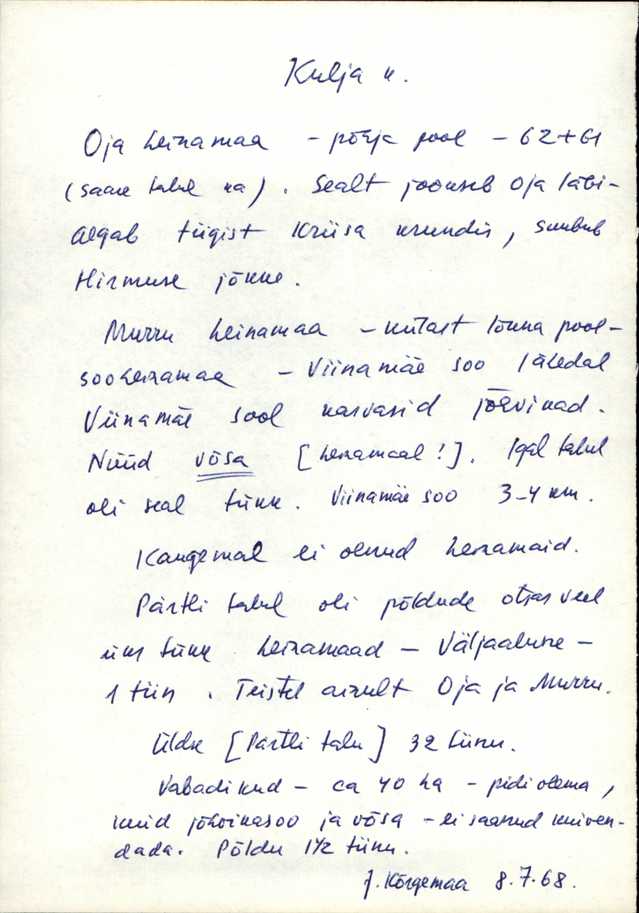 Kulja k.
Oja heinamaa - põhja pool - 62+61
(saare talul ka). Sealt jookseb Oja läbi-
algab tiigist Kriisa krundis, suubub
Hirmuse jõkke.
Murru heinamaa - külast lõuna pool-
sooheinamaa - Viinamäe soo lähedal
Viinamäe sool kasvasid jõhvikad.
Nüüd võsa [heinamaal!]. Igal talul
oli seal tükk. Viinamäe soo 3-4 km.
Kaugemal ei olnud heinamaid.
Pärtli talul oli põldude otsas veel
üks tükk heinamaad - Väljaaluse -
1 tiin. Teistel ainult Oja ja Murru.
Üldse [Pärtli talu] 32 tiinu.
Vabadikud - ca 40 ha - pidi olema,
kuid jõhvikasoo ja võsa - ei saanud kuiven-
dada. Põldu 1½ tiinu.
J. Kõrgemaa 8.7.68.